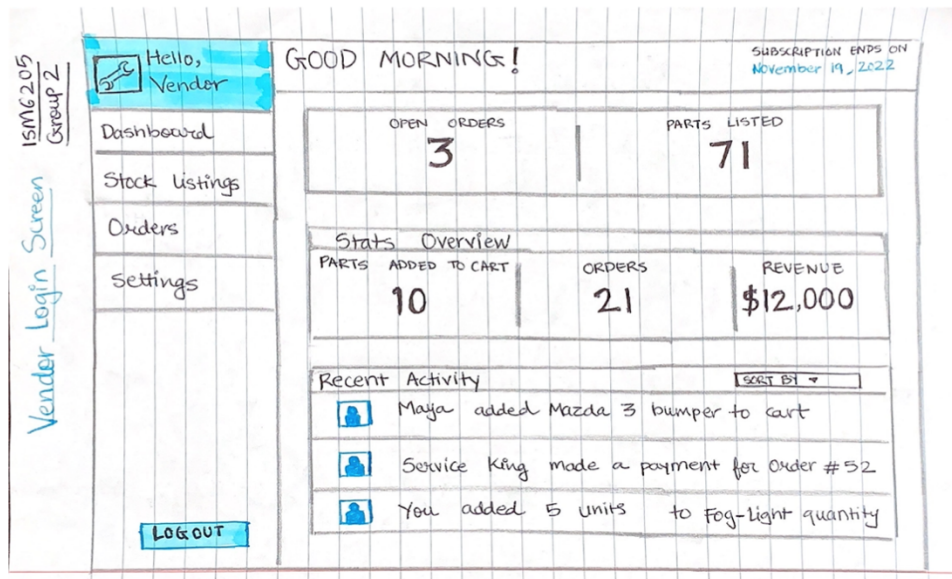 ISM6205
Group 2
Vendor Login Screen
Hello,
Vendor
Dashboard
Stock Listings
Orders
Settings
LOGOUT
GOOD MORNING!
SUBSCRIPTION ENDS ON
November 19, 2022
OPEN ORDERS
3
PARTS LISTED
71
Stats Overview
PARTS ADDED TO CART
10
ORDERS
21
REVENUE
$12,000
Recent Activity
SORT BY
Maya added Mazda 3 bumper to cart
Service King made a payment for Order #52
You added 5 units to Fog-Light quantity